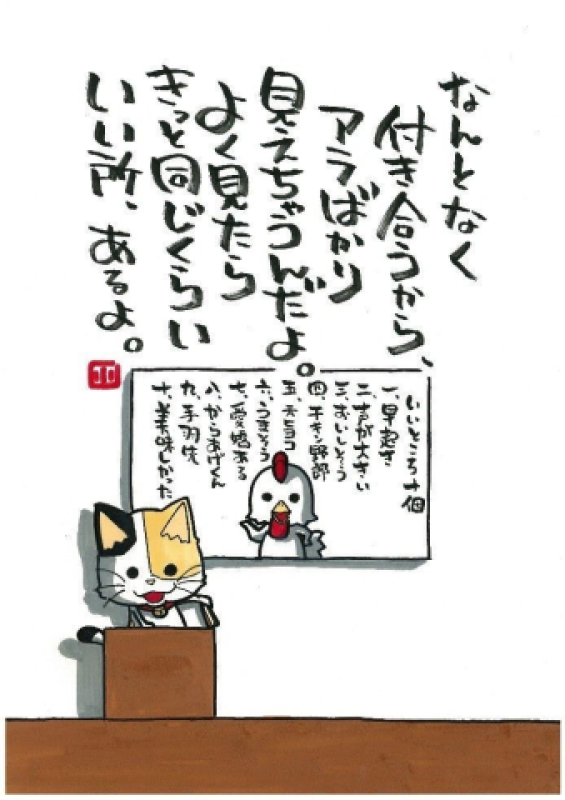 なんとなく
付き合うから、
アラばかり
見えちゃうんだよ。
よく見たら
きっと同じくらい
いい所、あるよ。
いいところ十個
一、早起き
二、声が大きい
三、おいしそう
四、チキン野郎
五、元ヒヨコ
六、うまそう
七、愛嬌ある
八、からあげくん
九、手羽先
十、美味しかった